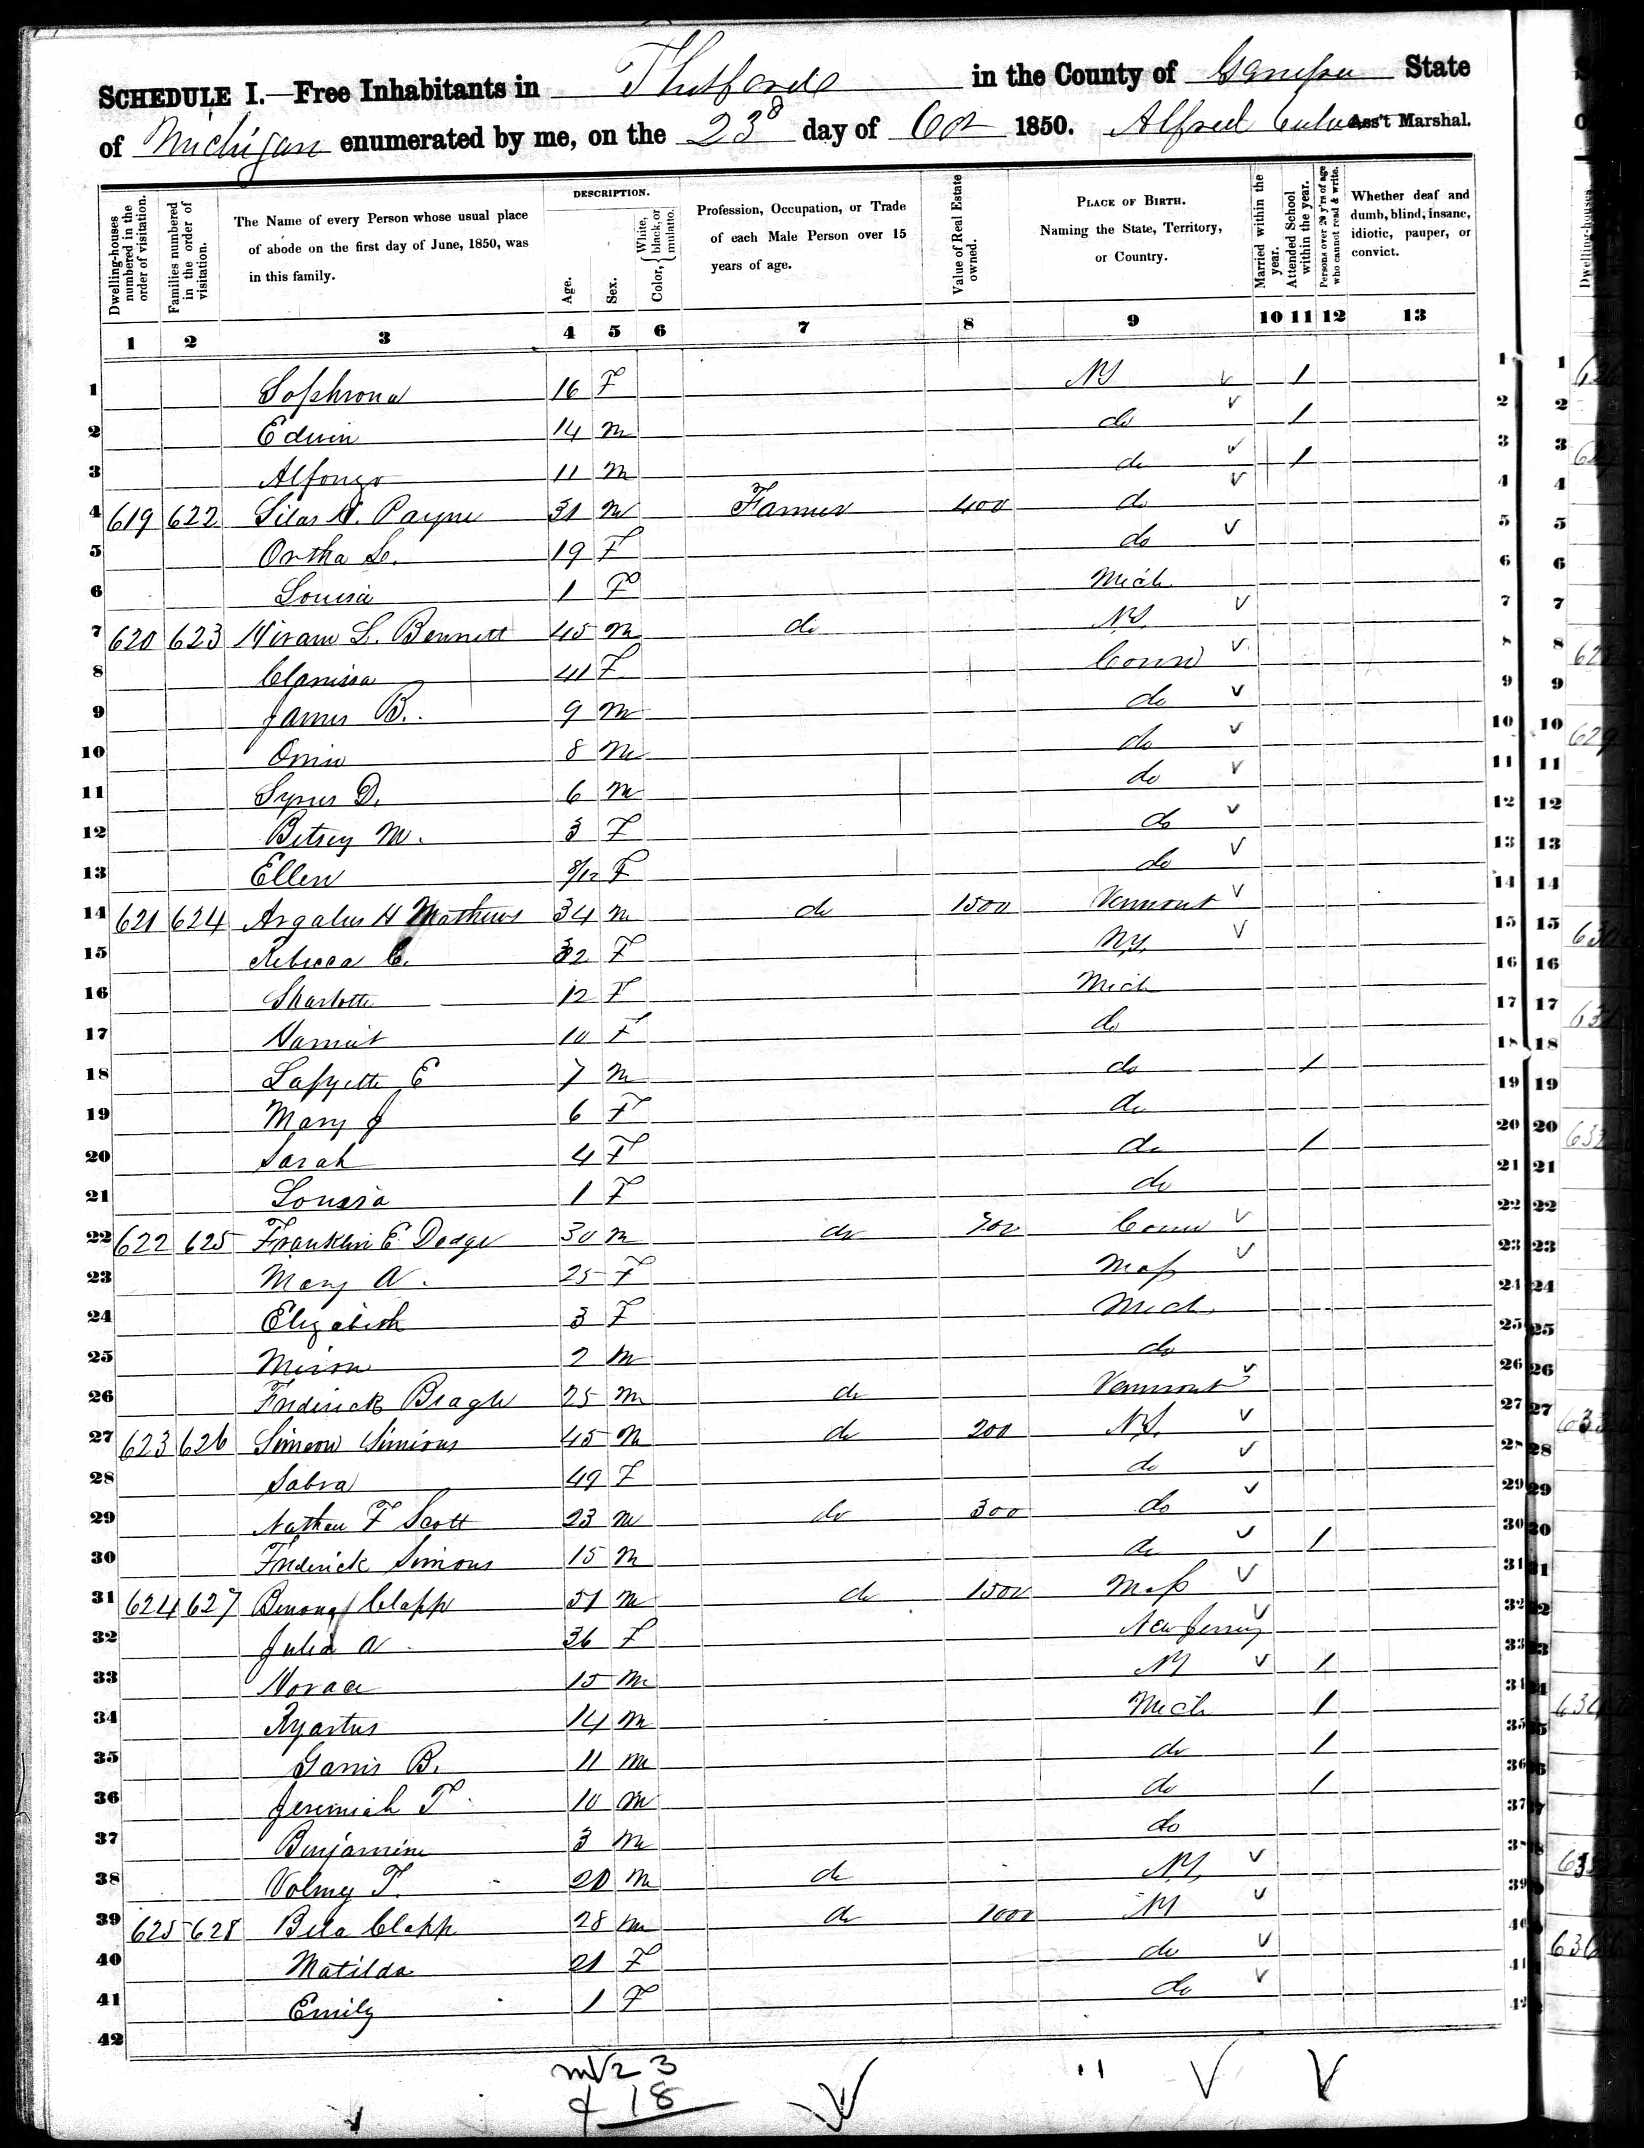 SCHEDULE I.—Free Inhabitants in Thetford in the County of Genesee State
of Michigan enumerated by me, on the 23d day of Oct 1850. Alfred Ass't Marshal.
Dwelling-houses numbered in the order of visitation.
Families numbered in the order of visitation.
The Name of every Person whose usual place of abode on the first day of June, 1850, was in this family.
DESCRIPTION.
Age.
Sex.
Color, { White, black, or mulatto.
Profession, Occupation, or Trade of each Male Person over 15 years of age.
Value of Real Estate owned.
PLACE OF BIRTH. Naming the State, Territory, or Country.
Married within the year.
Attended School within the year.
Persons over 20 y'rs of age who cannot read & write.
Whether deaf and dumb, blind, insane, idiotic, pauper, or convict.
1 2 3 4 5 6 7 8 9 10 11 12 13
1 Sophrona 16 F NY 1 1
2 Edwin 14 m do 1 2
3 Alfonzo 11 m do 1 3
4 619 622 Silas N. Payne 31 m Farmer 400 do 4
5 Ortha L. 19 F do 5
6 Louisa 1 F Mich 6
7 620 623 Hiram L. Bennett 45 m do NY 7
8 Clarissa 41 F Conn 8
9 James B. 9 m do 9
10 Orrin 8 m do 10
11 Syrus D. 6 m do 11
12 Betsey M. 3 F do 12
13 Ellen 8/12 F do 13
14 621 624 Argalus H Mathews 34 m do 1500 Vermont 14
15 Rebecca C. 32 F N.Y. 15
16 Sharlotte 12 F Mich 16
17 Harriet 10 F do 17
18 Lafyette E 7 m do 1 18
19 Mary J 6 F do 19
20 Sarah 4 F do 1 20
21 Louisa 1 F do 21
22 622 625 Franklin E Dodge 30 m do Conn 22
23 Mary A. 25 F Mass 23
24 Elizabeth 3 F Mich. 24
25 2 m do 25
26 Frederick 25 m do Vermont 26
27 623 626 Simeon Simons 45 m do 200 N.Y. 27
28 Sabra 49 F do 28
29 Nathan F Scott 23 m do 300 do 29
30 Frederick Simons 15 m do 1 30
31 624 627 Clapp 51 m do 1500 Mass 31
32 Julia A. 36 F New Jersey 32
33 Horace 15 m NY 1 33
34 14 m Mich 1 34
35 B. 11 m do 1 35
36 Jeremiah T 10 m do 1 36
37 Benjamin 3 m do 37
38 Volney T. 20 m do N.Y. 38
39 625 628 Bela Clapp 28 m do 1000 NY 39
40 Matilda 21 F do 40
41 Emily 1 F do 41
42 42
m 23
f 18